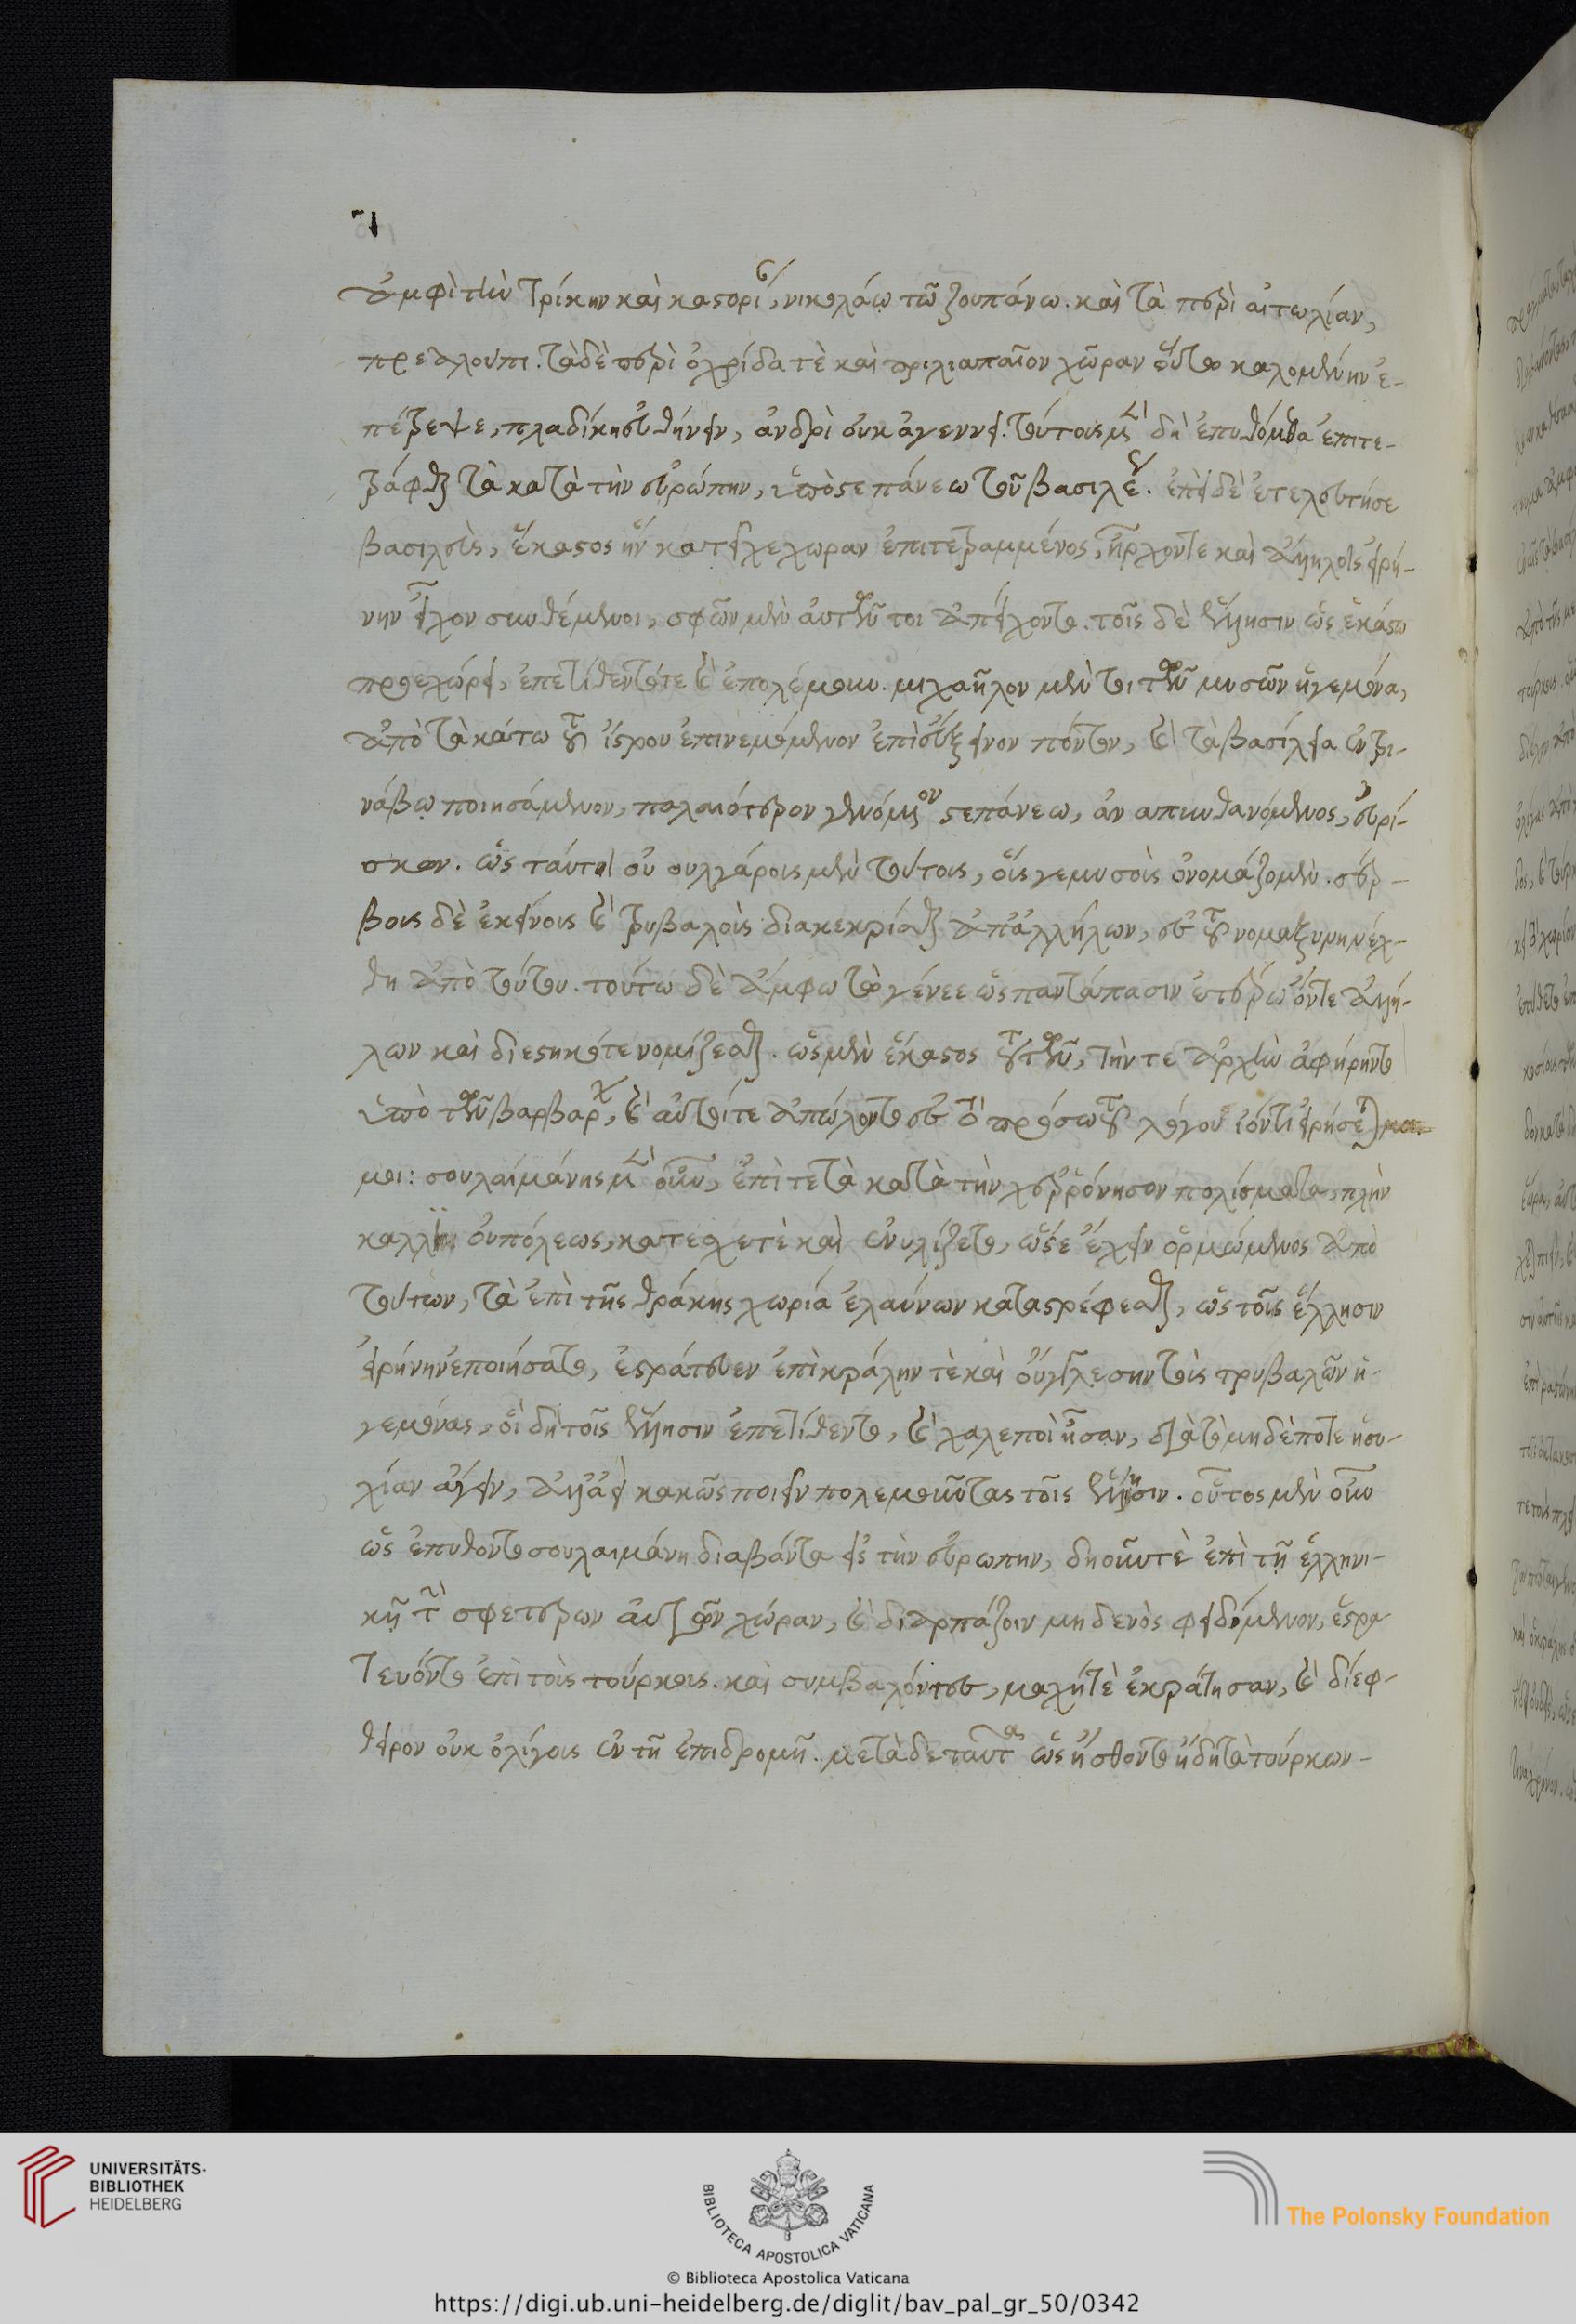 ἀμφὶ τὴν τρίκην καὶ καστορίαν, νικολάω τῶ ζουπάνω. καὶ τὰ περὶ αἰτωλίαν,
πρεαλούπι. τὰ δὲ περὶ ὀχρίδα τὲ καὶ πριλιαπαῖον χῶραν οὕτω καλομένην ἐ-
πέτρεψε, πλαδίκη εὐθήνειν, ἀνδρὶ οὐκ ἀγεννεῖ. τούτοις μὲν δὴ ἐπυθόμεθα ἐπιτε-
τράφθαι τὰ κατὰ τὴν εὐρώπην, ὑπὸ στεπάνεω τοῦ βασιλέως. ἐπεὶ δὲ ἐτελεύτησε
βασιλεὺς, ἕκαστος ἣν κατεῖχε χωραν ἐπιτετραμμένος, ἦρχόντε καὶ ἀλλήλοις εἰρή-
νην εἶχον συνθέμενοι, σφῶν μὲν αὐτῶν τοι ἀπείχοντο. τοῖς δὲ ἕλλησιν ὡς ἑκάστω
προεχώρει, ἐπετίθεντότε καὶ ἐπολέμουν. μιχαῆλον μὲν τοι τῶν μυσῶν ἡγεμόνα,
ἀπὸ τὰ κάτω τοῦ ἴστρου ἐπινεμόμενον ἐπὶ εὔξεινον πόντον, καὶ τὰ βασίλεια ἐν τρι-
νάβω ποιησάμενον, παλαιότερον γενόμενον στεπάνεω, ἀναπυνθανόμενος, εὑρί-
σκων. ὡς ταύτη οὐ ουλγάροις μὲν τούτοις, οἷς γε μυσοὺς ὀνομάζομεν. σέρ-
βοις δὲ ἐκείνοις καὶ τριβαλοὺς διακεκρίσθαι ἀπ' ἀλλήλων, ἐς τοὔνομα ξυνηνέχ-
θη ἀπὸ τούτου. τούτω δὲ ἄμφω τὼ γένεε ὡς παντάπασιν ἑτέρω ὄντε ἀλλή-
λων καὶ διεστηκότε νομίζεσθαι. ὡς μὲν ἕκαστος τούτων, τήν τε ἀρχὴν ἀφήρηντο
ὑπὸ τῶν βαρβάρων, καὶ αὐτοίτε ἀπώλοντο ἐς τὸ πρόσω τοῦ λόγου ἰόντι εἰρήσεται
μοι: σουλαϊμάνης μὲν οὖν, ἐπὶ τε τὰ κατὰ τὴν χερρόνησον πολίσματα, πλὴν
καλλιουπόλεως, κατέσχετὲ καὶ ἐνυλίζετο, ὥστε ἔχειν ὁρμώμενος ἀπὸ
τούτων, τὰ ἐπὶ τῆς θράκης χωρία ἐλαύνων καταστρέφεσθαι, ὡς τοῖς ἕλλησιν
εἰρήνην ἐποιήσατο, ἐστράτευεν ἐπὶ κράλην τὲ καὶ οὔγκλεσην τοὺς τρυβαλῶν ἡ-
γεμόνας, οἳ δὴ τοῖς ἕλλησιν ἐπετίθεντο, καὶ χαλεποὶ ἦσαν, διὰ τὸ μηδέποτε ἡσυ-
χίαν ἄγειν, ἀλλ' ἀεὶ κακῶς ποιεῖν πολεμοῦντας τοῖς ἕλλησιν. οὗτος μὲν οὖν
ὡς ἐπύθοντο σουλαιμάνη διαβάντα εἰς τὴν εὐρωπην, δηοῦντὲ ἐπὶ τῆ ἑλληνι-
κῆ τὴν σφετέρων αὐτῶν χώραν, καὶ διαρπάζοιν μηδενὸς φειδόμενον, ἐστρα-
τευόντο ἐπὶ τοὺς τούρκους. καὶ συμβαλόντες, μάχητὲ ἐκράτησαν, καὶ διέφ-
θειρον οὐκ ὀλίγοις ἐν τῆ ἐπιδρομῆ. μετὰ δε ταῦτα ὡς ἤσθοντο ἤδη τὰ τούρκων-
UNIVERSITÄTS-
BIBLIOTHEK
HEIDELBERG
BIBLIOTECA APOSTOLICA VATICANA
The Polonsky Foundation
© Biblioteca Apostolica Vaticana
https://digi.ub.uni-heidelberg.de/diglit/bav_pal_gr_50/0342